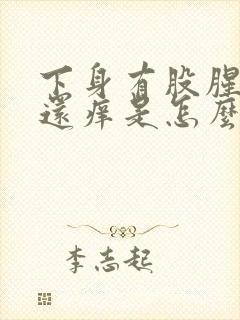 下身有股腥
还痒是怎麼
李志起